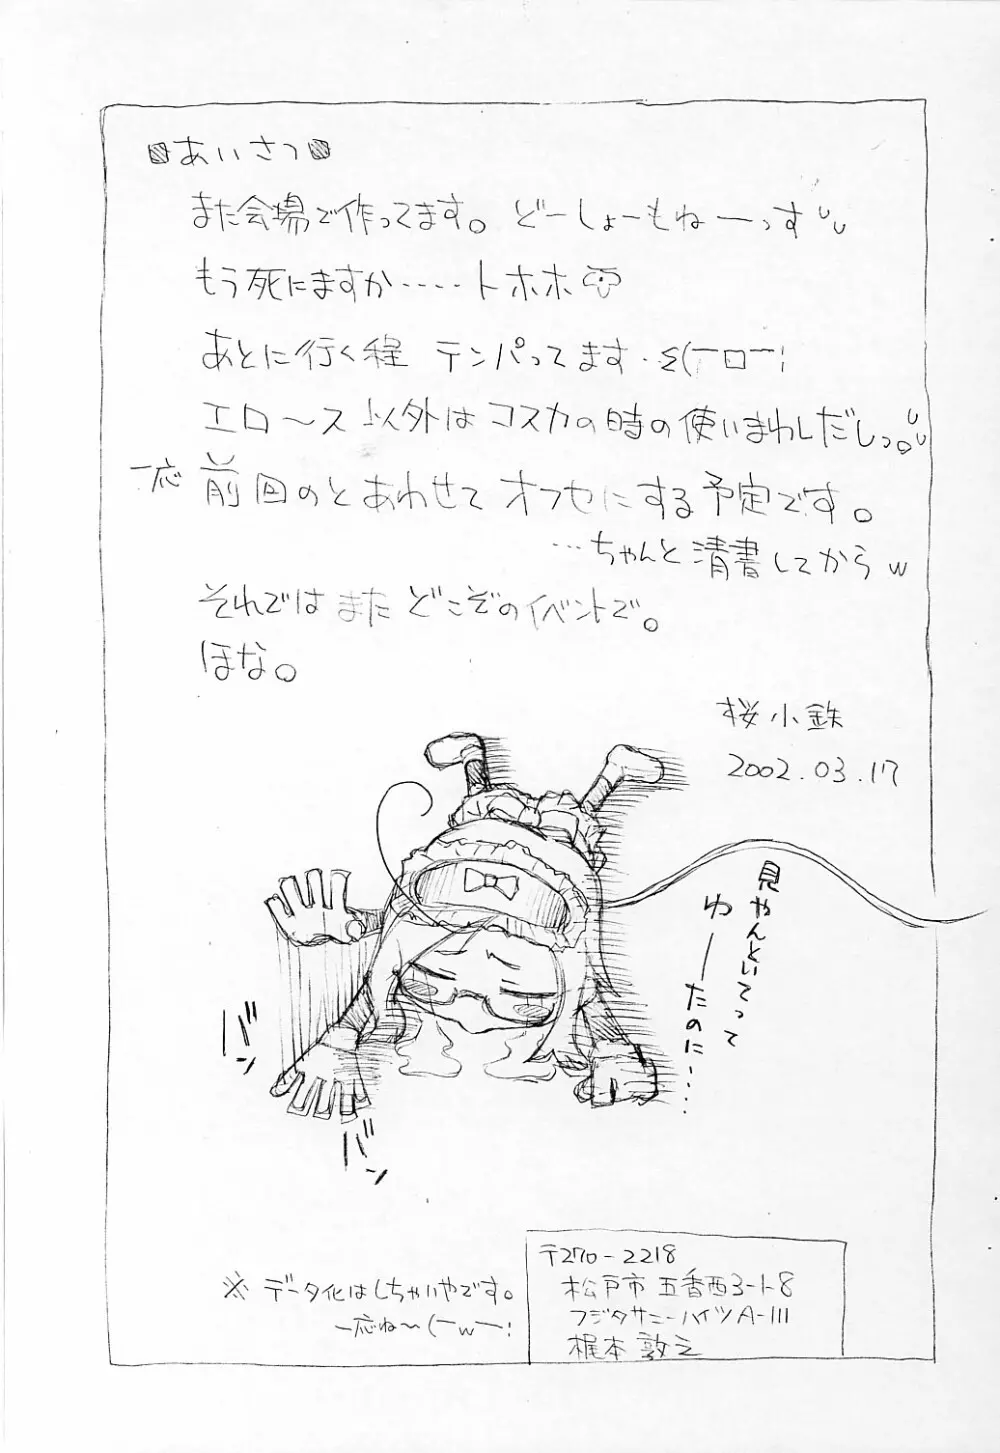 あいさつ
また会場で作ってます。どーしょーもねーっす
もう死にますか.....トホホ
あとに行く程 テンパってます・Σ(￣ロ￣;
エロ～ス以外はコスカの時の使いまわしだしっ。
一応 前回のとあわせてオフセにする予定です。
…ちゃんと清書してからw
それではまたどこぞのイベントで。
ほな。
桜小鉄
2002.03.17
見やんといてって
ゆーたのに....
バン
バン
※データ化はしちゃいやです。
一応ね～(￣w￣;
〒270-2218
松戸市五香西3-1-8
フジタサニーハイツA-111
梶本敦之